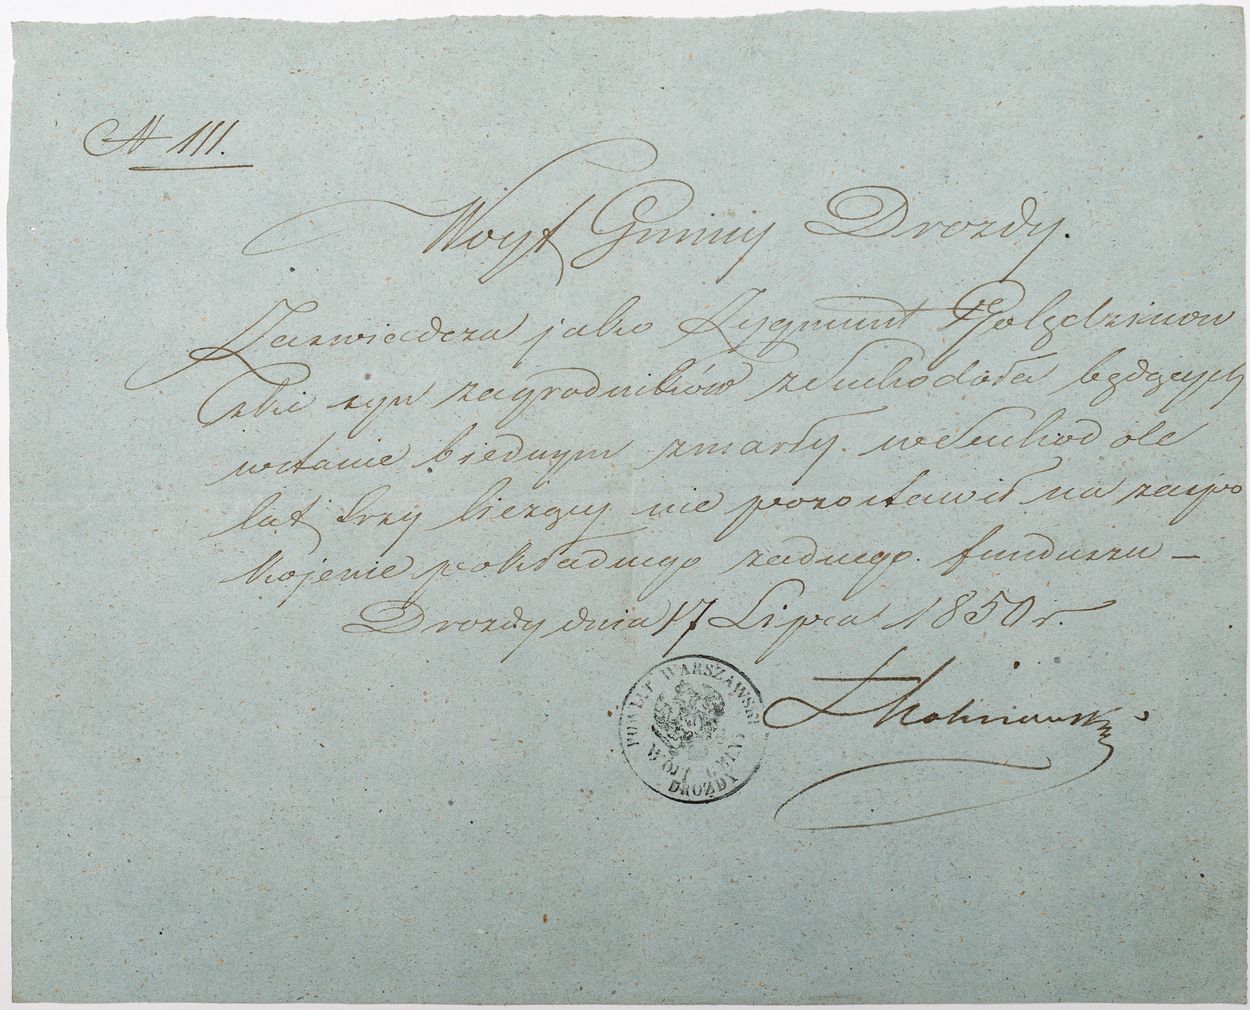 N 111.
Woyt Gminy Drozdy.
Zaswiadcza jako Zygmunt Golędzinow
ski syn zagrodników z Suchodoła będących
wstanie biednym zmarły w Suchodole
lat trzy liczący nie pozostawił na zaspo
kojenie pokładnego żadnego funduszu —
Drozdy dnia 17 Lipca 1850 r.
POWIAT WARSZAWSKI
WÓJT GMINY
DROZDY